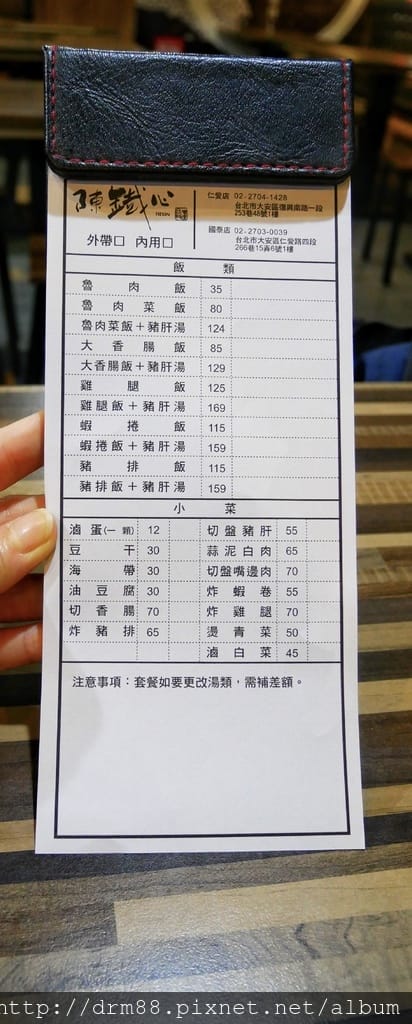 陳鐵心
仁愛店 02-2704-1428
台北市大安區復興南路一段
253巷48號1樓
國泰店 02-2703-0039
台北市大安區仁愛路四段
266巷15弄6號1樓
外帶□ 內用□
飯類
魯肉飯 35
魯肉菜飯 80
魯肉菜飯+豬肝湯 124
大香腸飯 85
大香腸飯+豬肝湯 129
雞腿飯 125
雞腿飯+豬肝湯 169
蝦捲飯 115
蝦捲飯+豬肝湯 159
豬排飯 115
豬排飯+豬肝湯 159
小菜
滷蛋(一顆) 12 切盤豬肝 55
豆干 30 蒜泥白肉 65
海帶 30 切盤嘴邊肉 70
油豆腐 30 炸蝦卷 55
切香腸 70 炸雞腿 70
炸豬排 65 燙青菜 50
滷白菜 45
注意事項：套餐如要更改湯類，需補差額。
http://drm88.pixnet.net/album